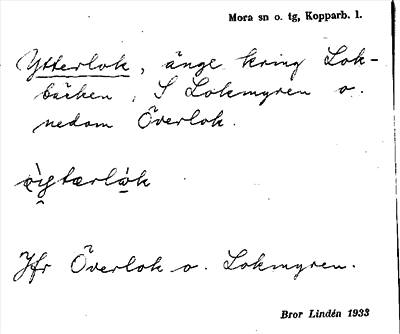 Mora sn o. tg, Kopparb. l.
Ytterlok, änge kring Lok-
bäcken, S Lokmyren o.
nedom Överlok.
Jfr Överlok o. Lokmyren.
Bror Lindén 1933